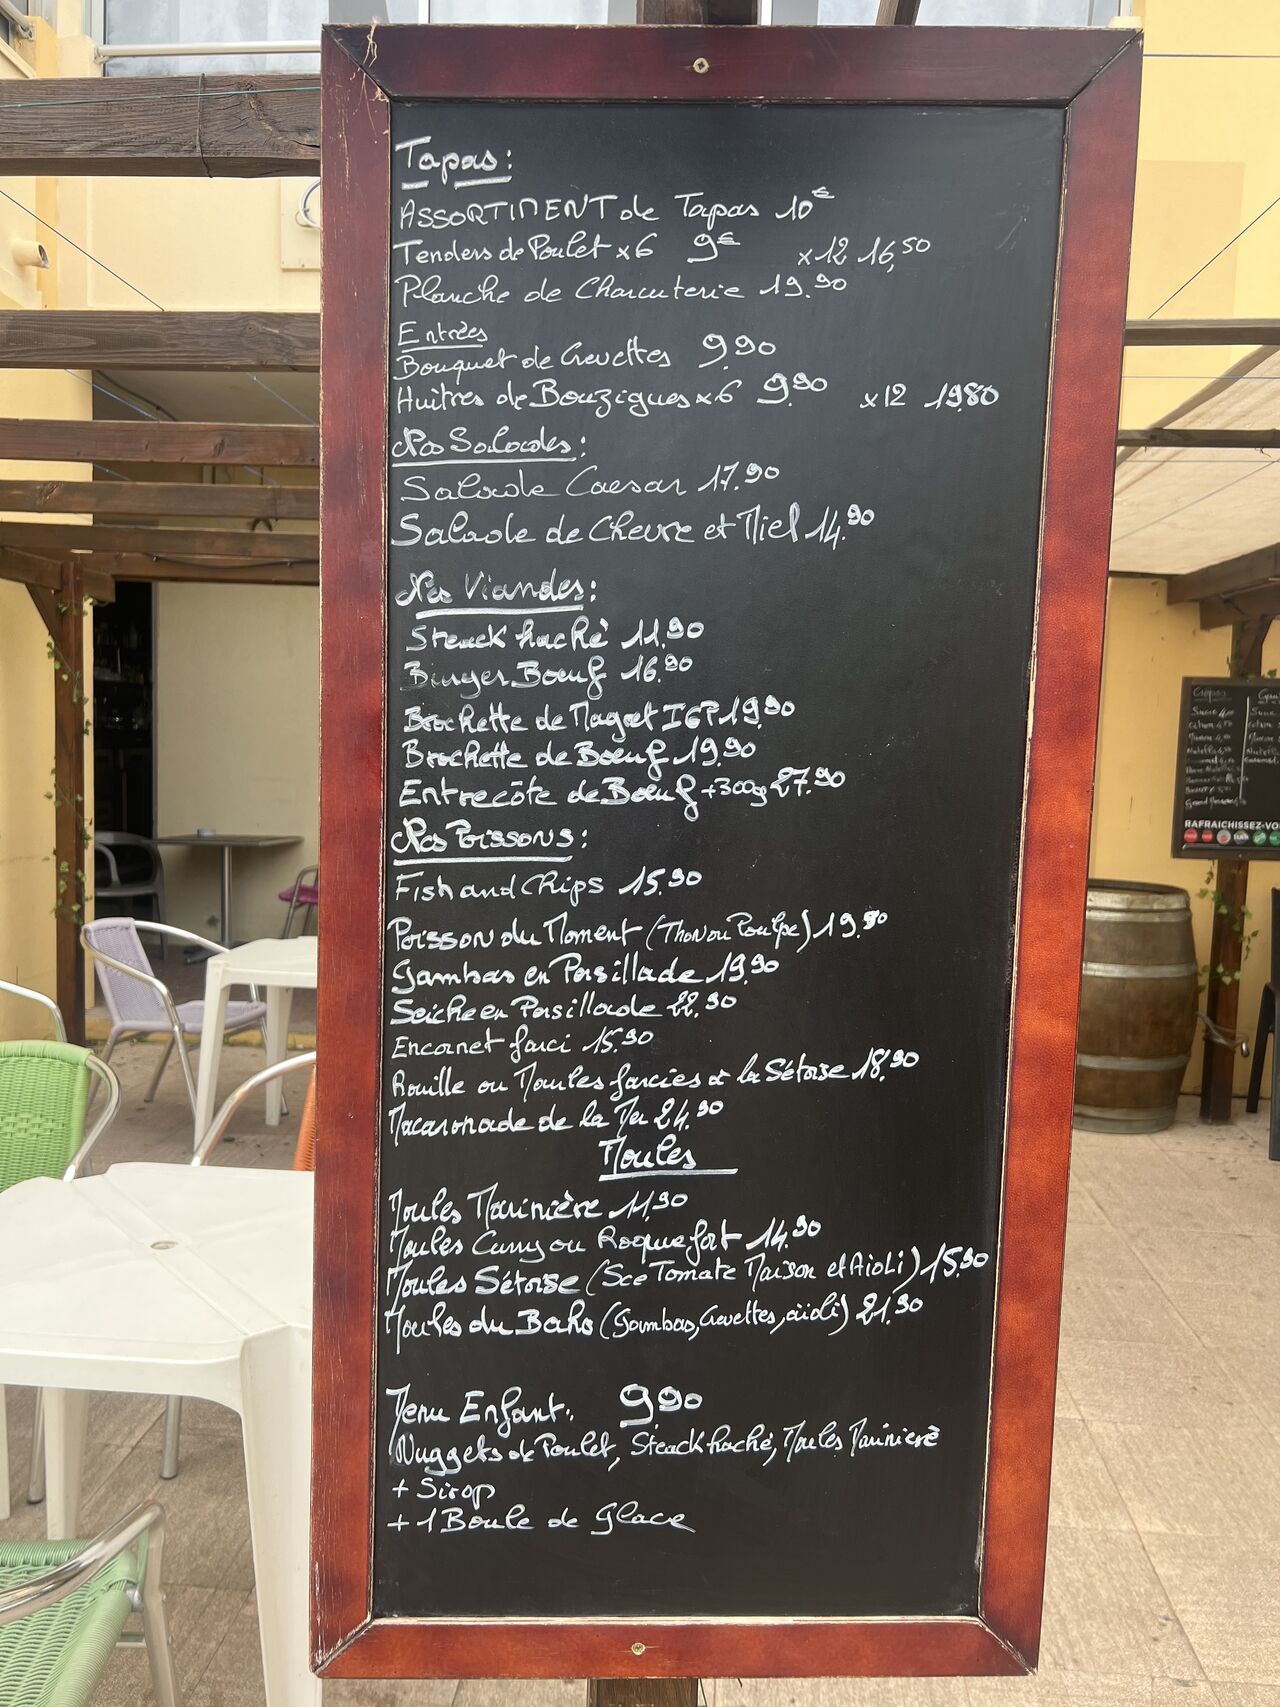 Tapas:
ASSORTIMENT de Tapas 10€
Tenders de Poulet x6 9€ x12 16,50
Planche de Charcuterie 19.90
Entrées
Bouquet de Crevettes 9.90
Huîtres de Bouzigues x6 9.90 x12 19.80
Nos Salades:
Salade Caesar 17.90
Salade de Chèvre et Miel 14.90
Nos Viandes:
Steack haché 11.90
Burger Bœuf 16.90
Brochette de Magret IGP 19.90
Brochette de Bœuf 19.90
Entrecôte de Bœuf +300g 27.90
Nos Poissons:
Fish and Chips 15.90
Poisson du Moment (Thon ou Poulpe) 19.90
Gambas en Persillade 19.90
Seiche en Persillade 22.90
Encornet farci 15.90
Rouille ou Moules farcies à la Sétoise 18.90
Macaronade de la Mer 24.90
Moules
Moules Marinière 11.90
Moules Curry ou Roquefort 14.90
Moules Sétoise (Sce Tomate Maison et Aioli) 15.90
Moules du Baho (Gambas, Crevettes, aïoli) 21.90
Menu Enfant: 9.90
Nuggets de Poulet, Steack haché, Moules Marinière
+ Sirop
+ 1 Boule de Glace
Crêpes
Sucre
RAFRAICHISSEZ-VO